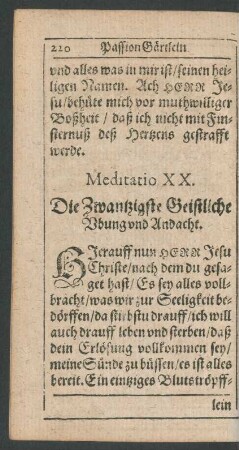 220 Passion Gärtlein
vnd alles was in mir ist / seinen hei-
ligen Namen. Ach HERR Je-
su / behüte mich vor muthwilliger
Boßheit / daß ich nicht mit Fin-
sternuß deß Hertzens gestrafft
werde.
Meditatio XX.
Die Zwantzigste Geistliche
Vbung vnd Andacht.
HIerauff nun HERR Jesu
Christe / nach dem du gesa-
get hast / Es sey alles voll-
bracht / was wir zur Seeligkeit be-
dörffen / da stirbstu drauff / ich will
auch drauff leben vnd sterben / daß
dein Erlösung vollkommen sey /
meine Sünde zu büssen / es ist alles
bereit. Ein eintziges Blutströpff-
lein